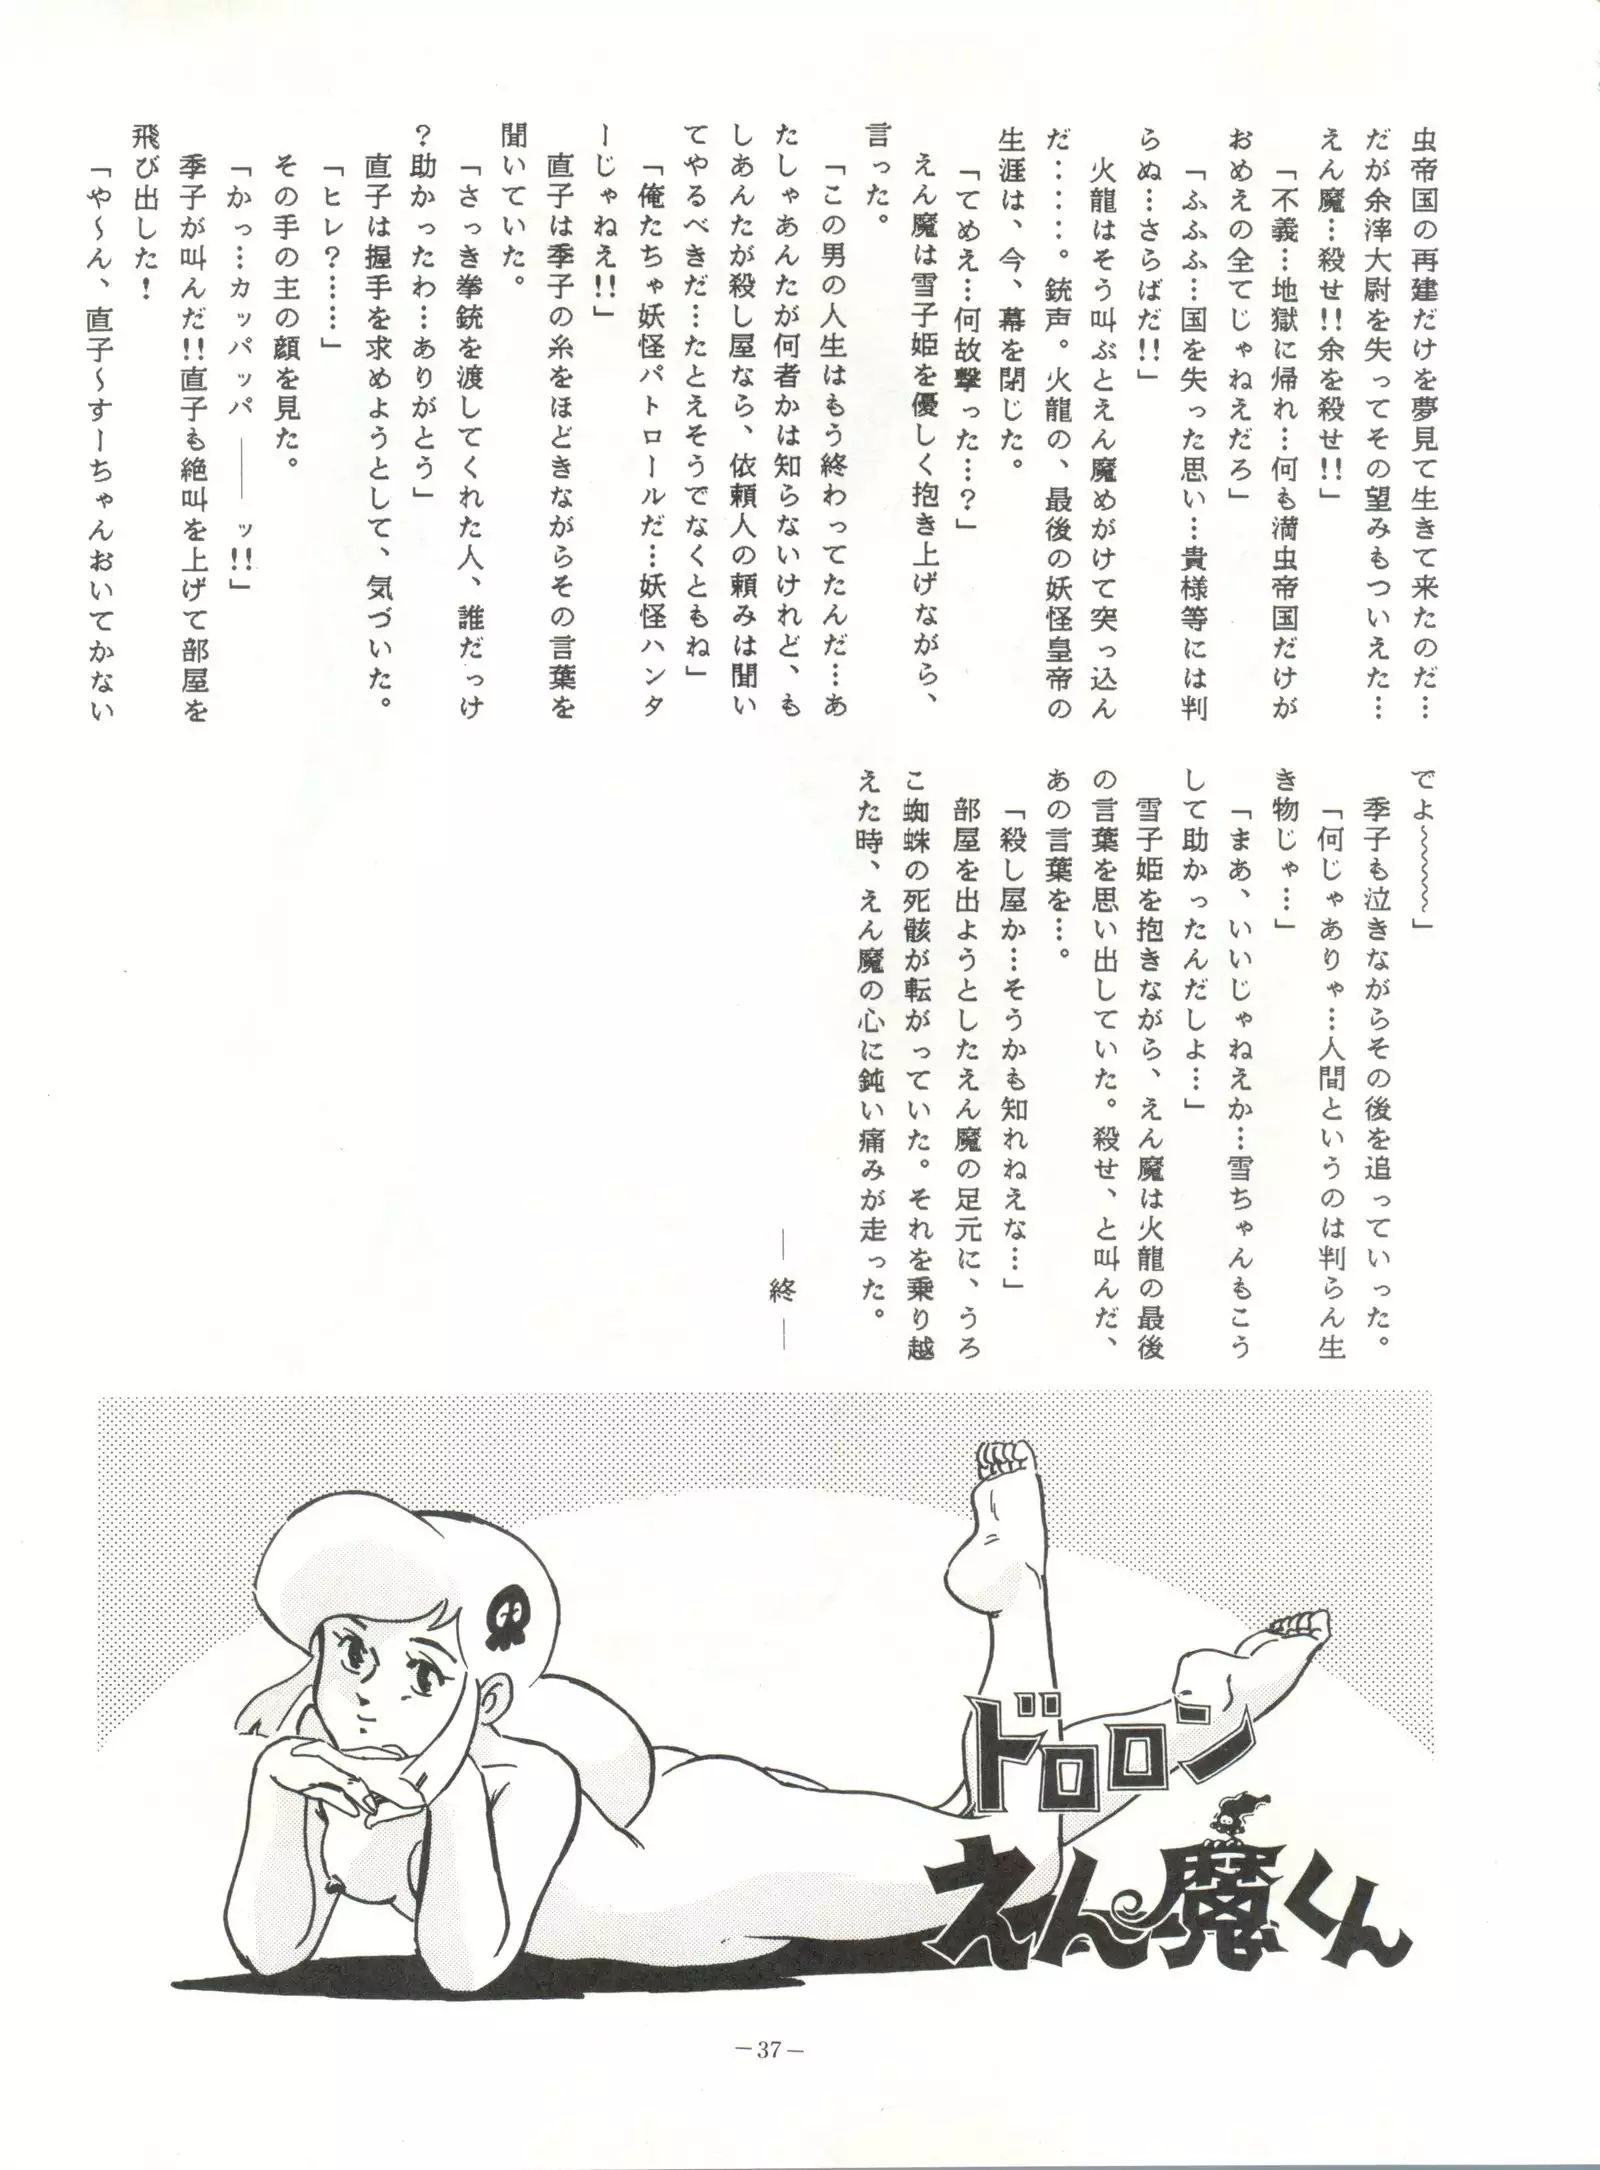 虫帝国の再建だけを夢見て生きて来たのだ…
だが余滓大尉を失ってその望みもついえた…
えん魔…殺せ!!余を殺せ!!」
「不義…地獄に帰れ…何も満虫帝国だけが
おめえの全てじゃねえだろ」
「ふふふ…国を失った思い…貴様等には判
らぬ…さらばだ!!」
火龍はそう叫ぶとえん魔めがけて突っ込ん
だ……。銃声。火龍の、最後の妖怪皇帝の
生涯は、今、幕を閉じた。
「てめえ…何故撃った…?」
えん魔は雪子姫を優しく抱き上げながら、
言った。
「この男の人生はもう終わってたんだ…あ
たしゃあんたが何者かは知らないけれど、も
しあんたが殺し屋なら、依頼人の頼みは聞い
てやるべきだ…たとえそうでなくともね」
「俺たちゃ妖怪パトロールだ…妖怪ハンタ
ーじゃねえ!!」
直子は季子の糸をほどきながらその言葉を
聞いていた。
「さっき拳銃を渡してくれた人、誰だっけ
?助かったわ…ありがとう」
直子は握手を求めようとして、気づいた。
「ヒレ?……」
その手の主の顔を見た。
「かっ…カッパッパ――ッ!!」
季子が叫んだ!!直子も絶叫を上げて部屋を
飛び出した!
「や～ん、直子～すーちゃんおいてかない
でよ～～～～」
季子も泣きながらその後を追っていった。
「何じゃありゃ…人間というのは判らん生
き物じゃ…」
「まあ、いいじゃねえか…雪ちゃんもこう
して助かったんだしよ…」
雪子姫を抱きながら、えん魔は火龍の最後
の言葉を思い出していた。殺せ、と叫んだ、
あの言葉を…。
「殺し屋か…そうかも知れねえな…」
部屋を出ようとしたえん魔の足元に、うろ
こ蜘蛛の死骸が転がっていた。それを乗り越
えた時、えん魔の心に鈍い痛みが走った。
―終―
ドロロン
えん魔くん
―37―